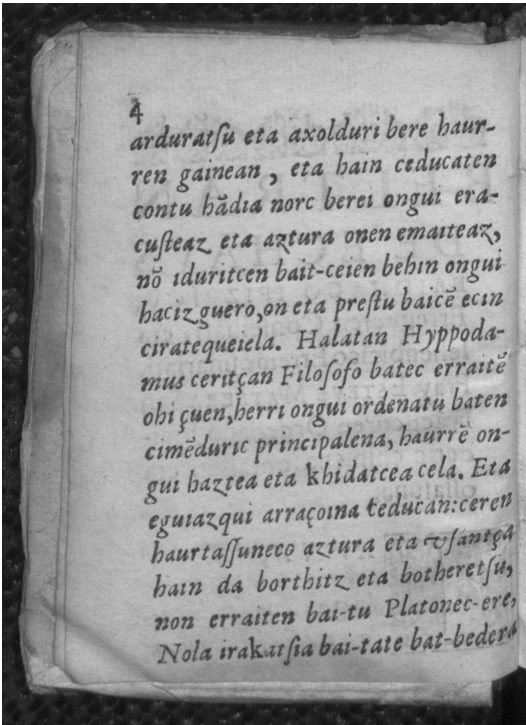 4
arduratſu eta axolduri bere haur-
ren gainean, eta hain ceducaten
contu hãdia norc berei ongui era-
cuſteaz eta aztura onen emaiteaz,
nõ iduritcen bait-ceien behin ongui
haciz guero, on eta preſtu baicẽ ecin
ciratequeiela. Halatan Hyppoda-
mus ceritçan Filoſofo batec erraitẽ
ohi çuen, herri ongui ordenatu baten
cimẽduric principalena, haurrẽ on-
gui haztea eta khidatcea cela. Eta
eguiazqui arraçoina ceducan: ceren
haurtaſſuneco aztura eta vſantça
hain da borthitz eta botheretſu,
non erraiten bai-tu Platonec-ere,
Nola irakatſia bai-tate bat-bedera